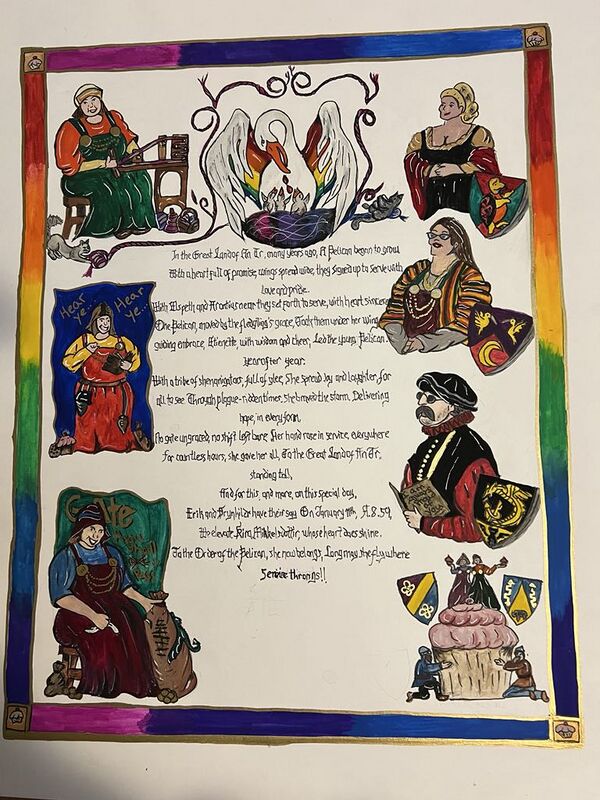 In the Great Land of An Tir, many years ago, A Pelican began to grow
With a heart full of promise, wings spread wide, they signed up to serve with
love and pride.
With Elspeth and Arontius near they set forth to serve, with heart sincere
One Pelican, moved by the fledgling's grace, Took them under her wing
guiding embrace, Etienette with wisdom and cheer, Led the young Pelican
year after year.
With a tribe of shenanigators, full of glee, She spread joy and laughter, for
all to see Through plague-ridden times, She braved the storm, Delivering
hope, in every form,
No gate ungraced, no shift left bare, Her hand rose in service, everywhere
for countless hours, she gave her all, To the Great Land of An Tir,
standing tall,
And for this, and more, on this special day,
Erik and Brynhildr have their say On January 11th, A.S. 59,
We elevate Kira Mikkelsdottir, whose heart does shine.
To the Order of the Pelican, she now belongs, Long may she fly where
Service throngs!!
Hear
ye...
Hear
ye...
Gate